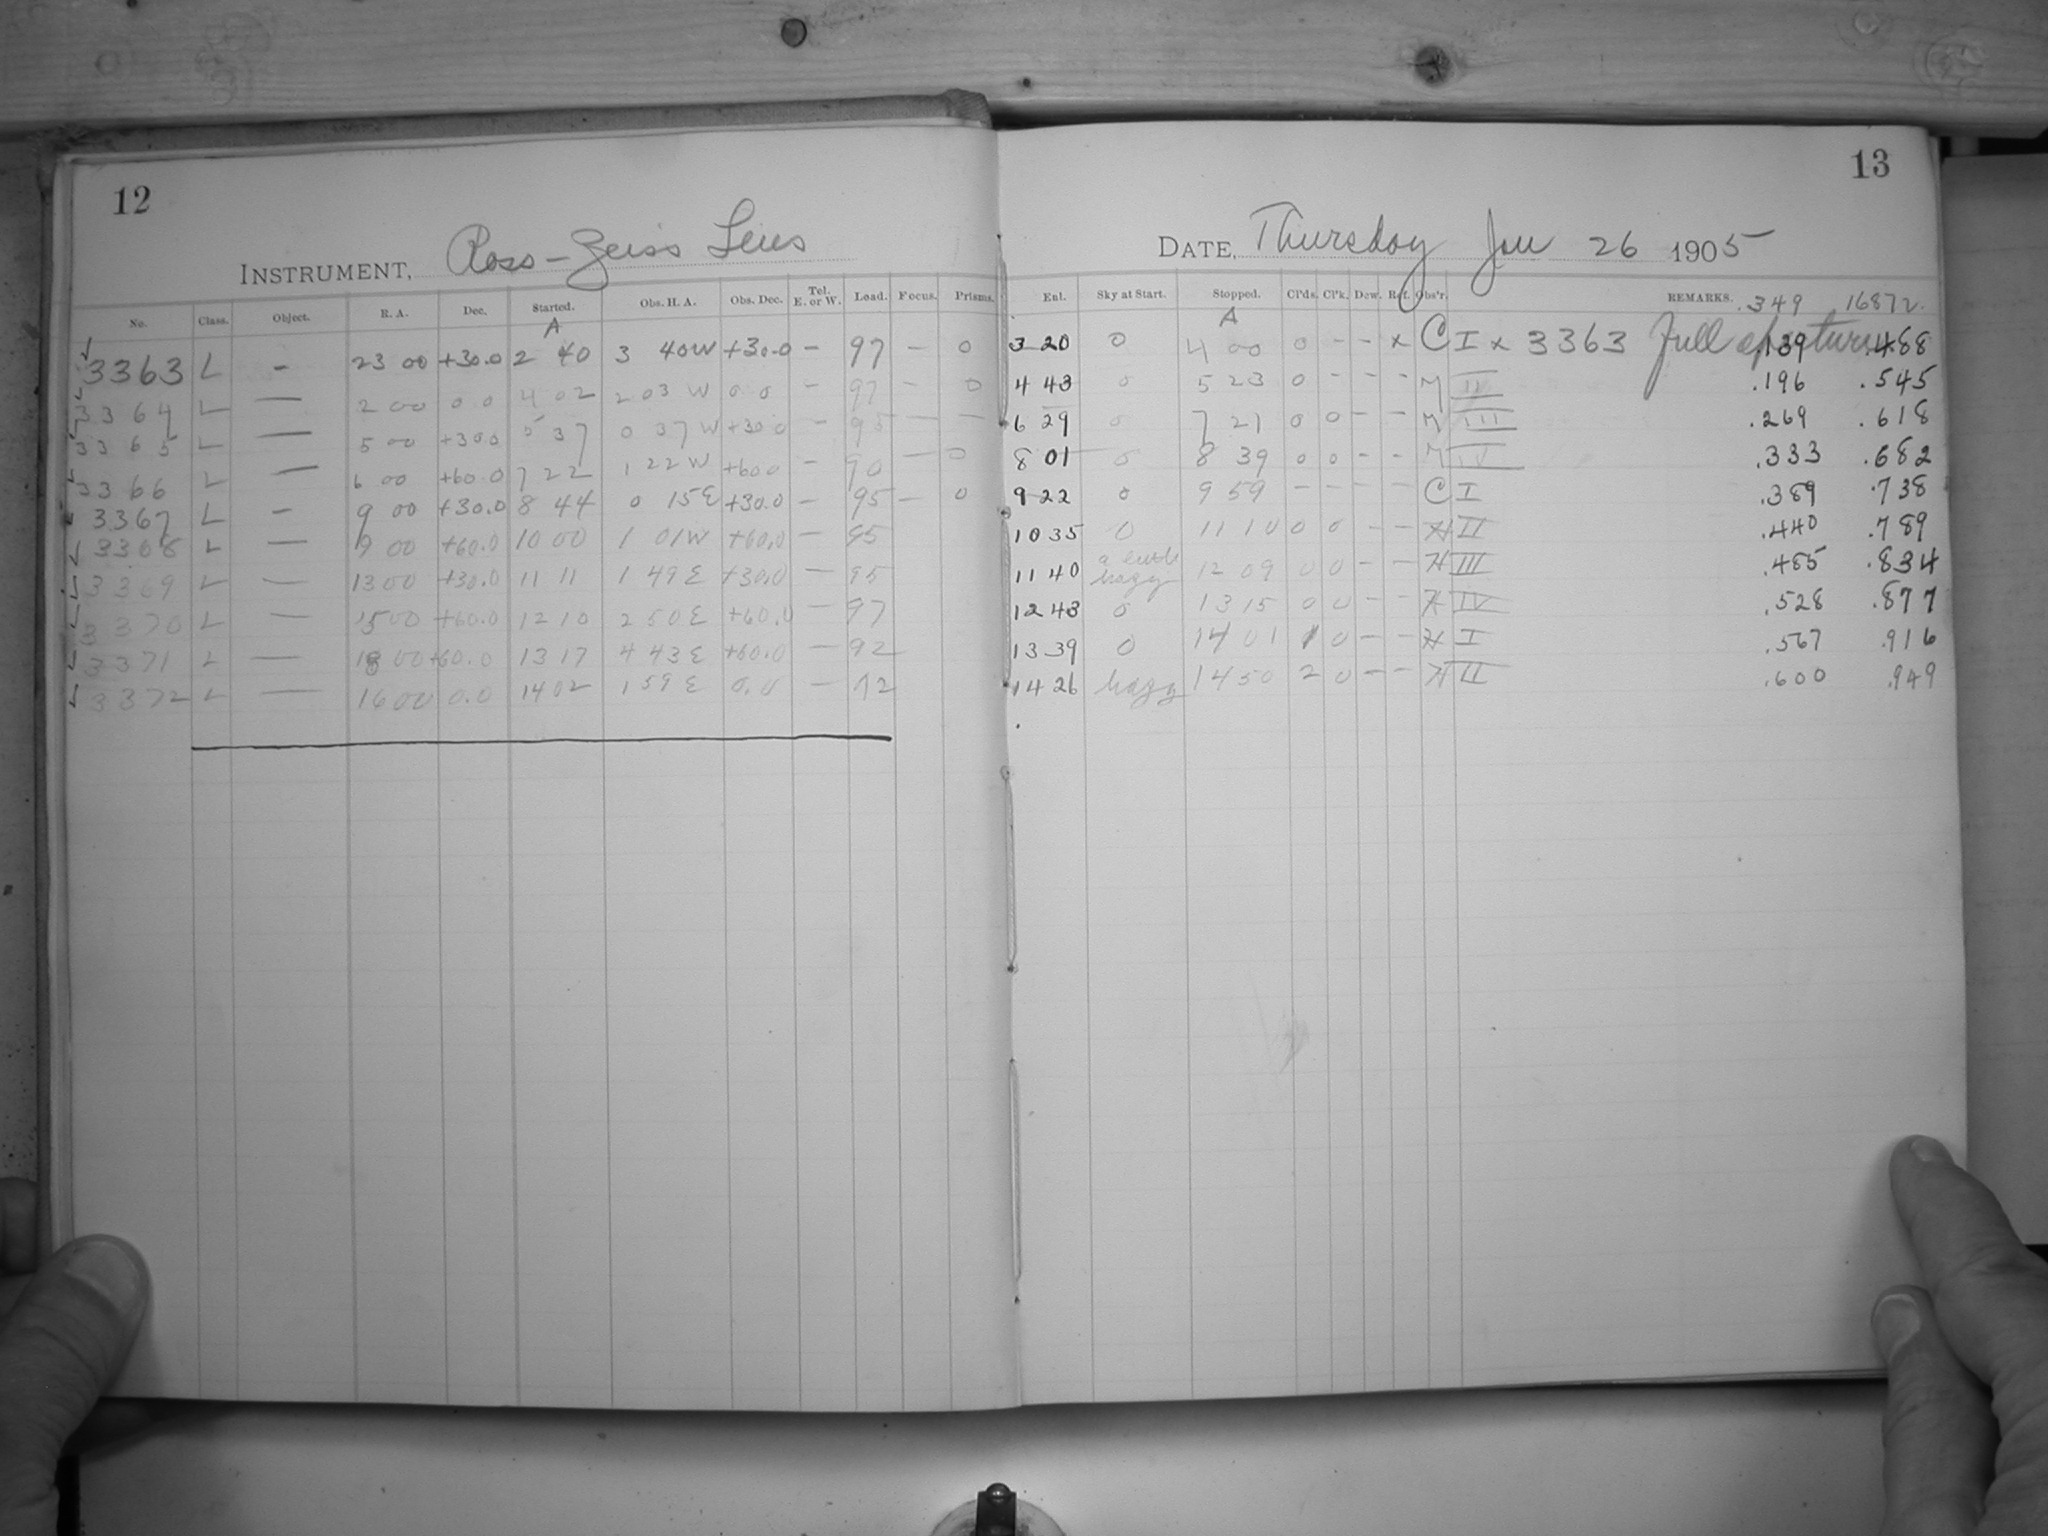 12
INSTRUMENT, Ross-Zeiss Lens
No. Class. Object. R. A. Dec. Started. Obs. H. A. Obs. Dec. Tel. E. or W. Load. Focus. Prisms.
A
3363 L - 23 00 +30.0 2 40 3 40W +30.0 - 97 - 0
3364 L — 2 00 0 0 4 02 2 03 W 0 0 - 97 - 0
3365 L — 5 00 +30.0 5 37 0 37 W +30.0 - 95 — —
3366 L — 6 00 +60.0 7 22 1 22 W +60.0 - 90 — 0
3367 L - 9 00 +30.0 8 44 0 15 E +30.0 - 95 - 0
3368 L — 9 00 +60.0 10 00 1 01W +60.0 — 95
3369 L — 13 00 +30.0 11 11 1 49 E +30.0 — 95
3370 L — 15 00 +60.0 12 10 2 50 E +60.0 — 97
3371 L — 18 00 +60.0 13 17 4 43 E +60.0 — 92
3372 L — 16 00 0.0 14 02 1 59 E 0.0 — 92
13
DATE, Thursday Jan 26 1905
Enl. Sky at Start. Stopped. Cl'ds. Cl'k. Dew. Ref. Obs'r. REMARKS. .349 16872.
A
3 20 0 4 00 0 - - x C I x 3363 Full aperture .139 .488
4 43 0 5 23 0 - - - M II .196 .545
6 29 0 7 21 0 0 - - M III .269 .618
8 01 0 8 39 0 0 - - M IV .333 .682
9 22 0 9 59 - - - - C I .389 .738
10 35 0 11 10 0 0 - - H II .440 .789
11 40 a little hazy 12 09 0 0 - - H III .485 .834
12 43 0 13 15 0 0 - - H IV .528 .877
13 39 0 14 01 1 0 - - H I .567 .916
14 26 hazy 14 50 2 0 - - H II .600 .949